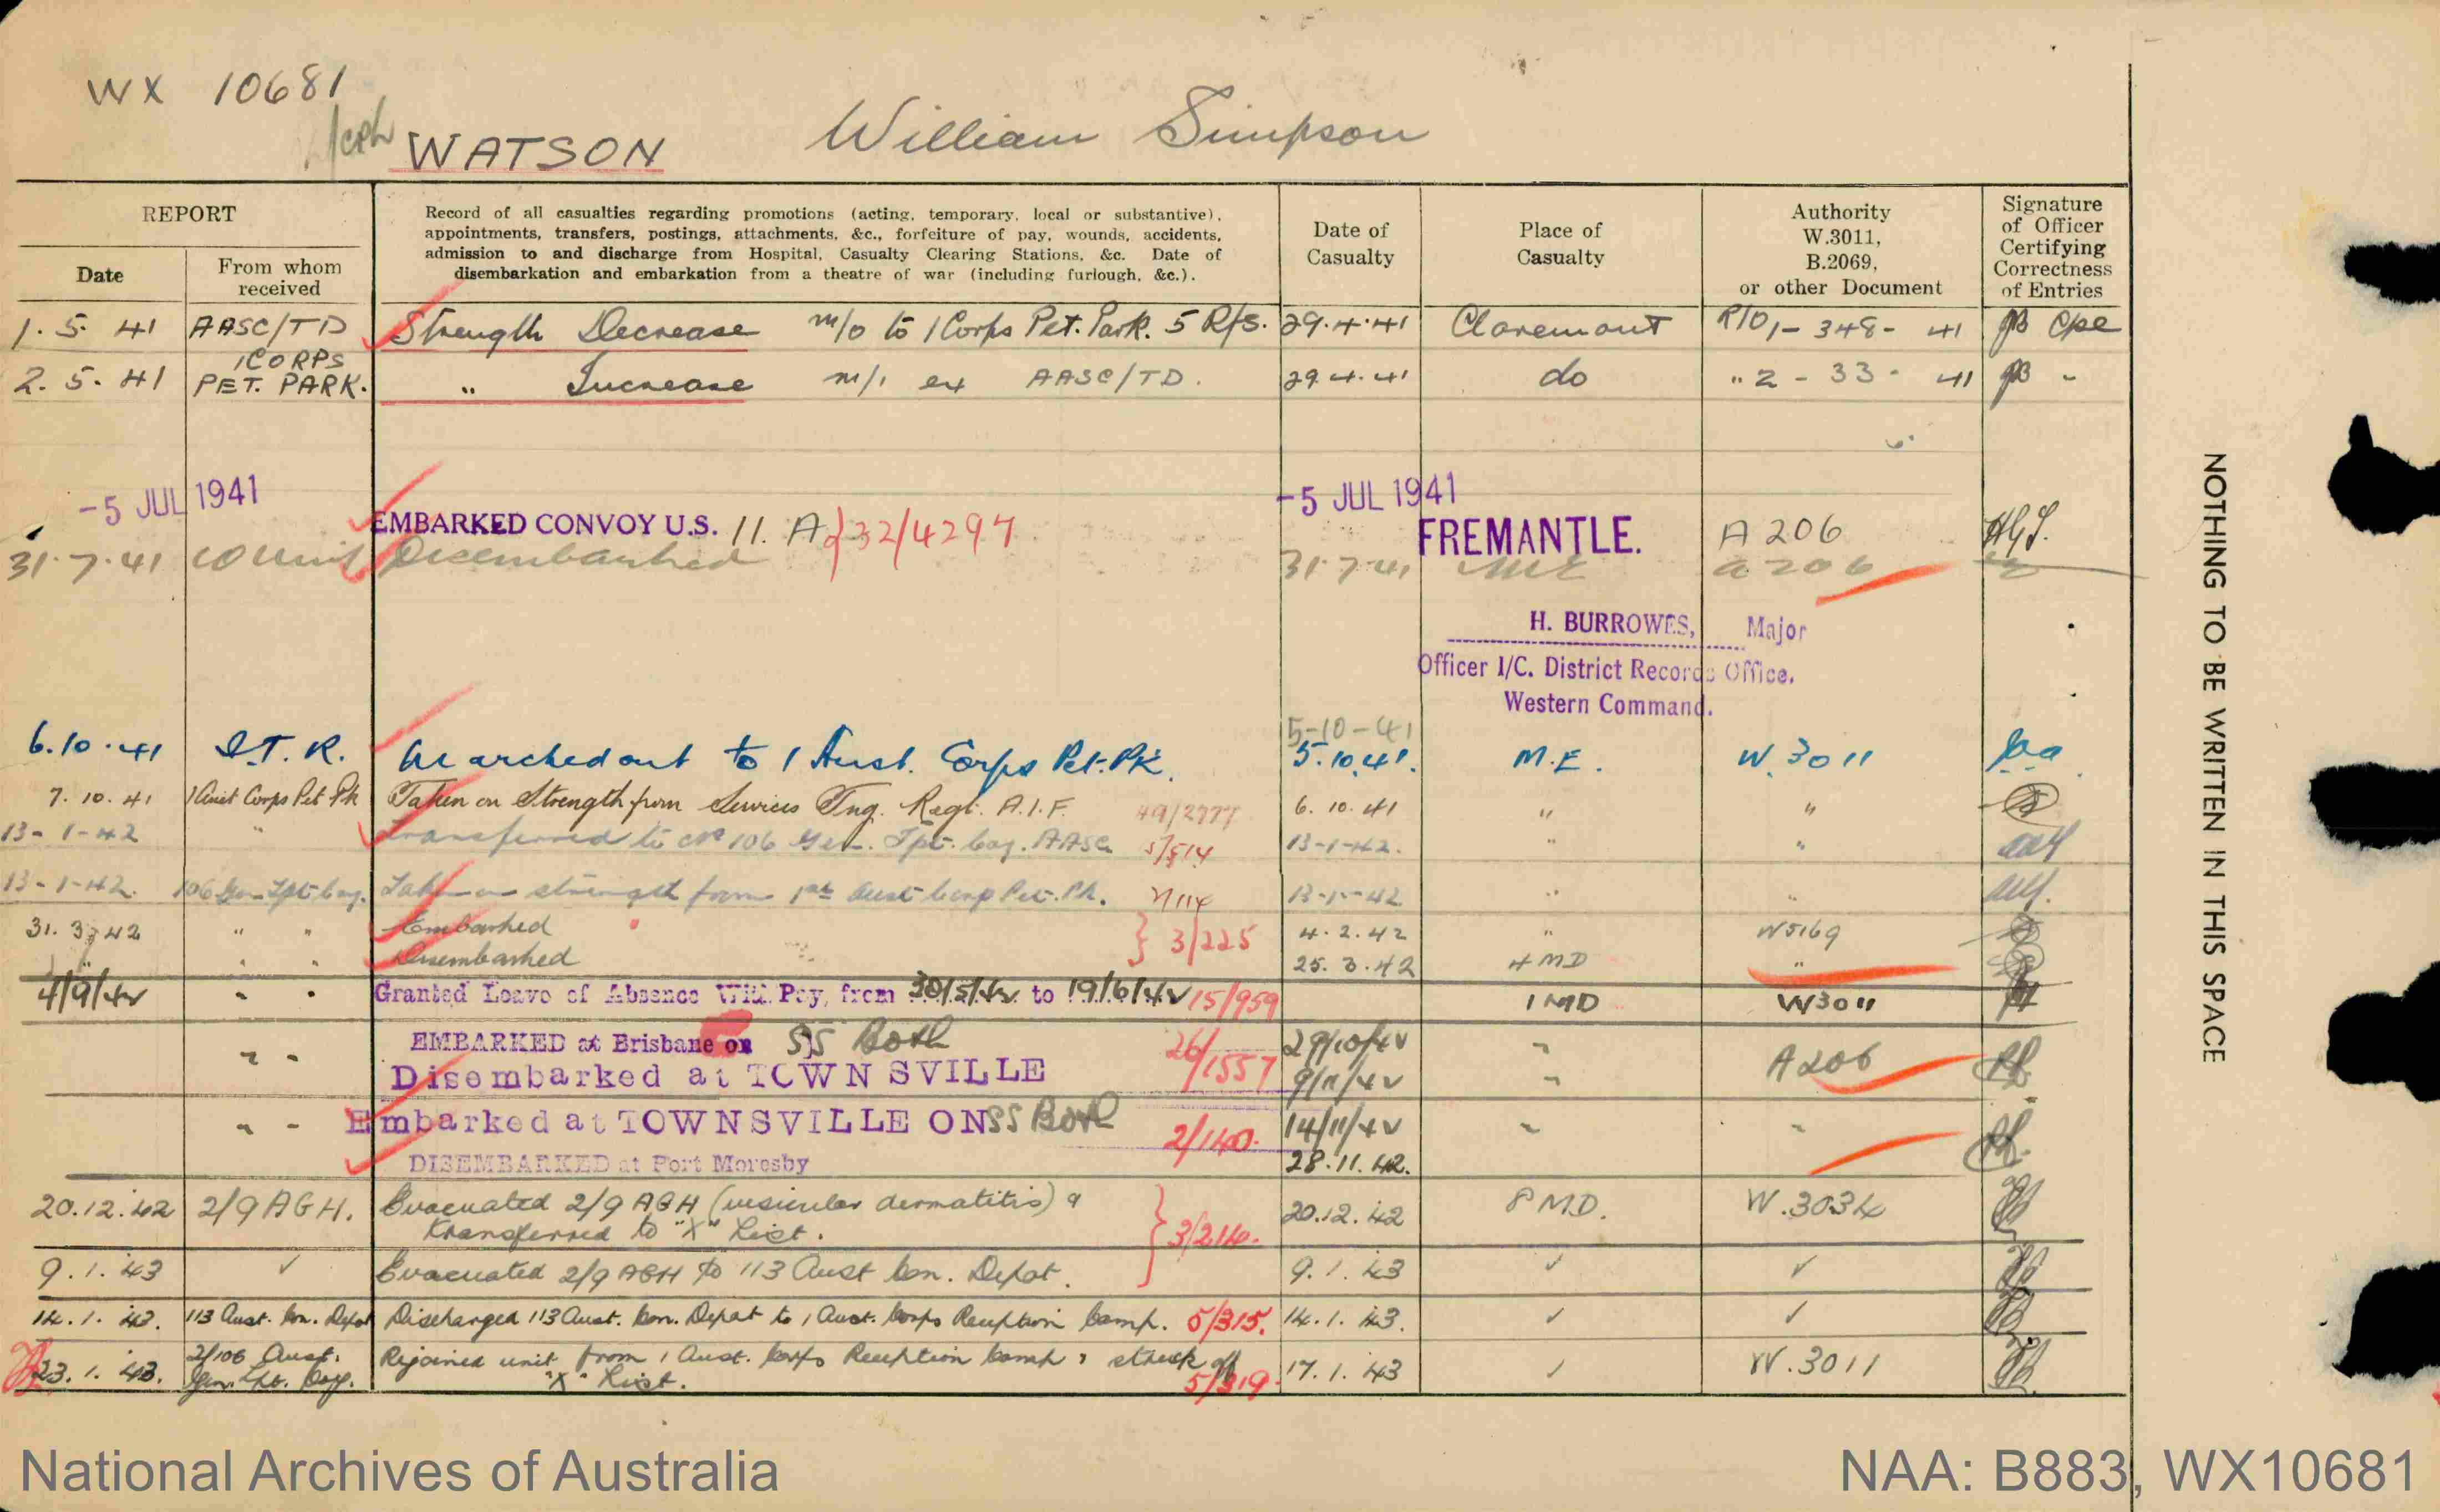 WX 10681
WATSON William Simpson
REPORT
Date
From whom received
Record of all casualties regarding promotions (acting, temporary, local or substantive),
appointments, transfers, postings, attachments, &c., forfeiture of pay, wounds, accidents,
admission to and discharge from Hospital, Casualty Clearing Stations, &c. Date of
disembarkation and embarkation from a theatre of war (including furlough, &c.).
Date of
Casualty
Place of
Casualty
Authority
W.3011,
B.2069,
or other Document
Signature
of Officer
Certifying
Correctness
of Entries
1. 5. 41 AASC/TD Strength Decrease m/o to 1 Corps Pet. Park. 5 Rfs. 29.4.41 Claremont R/O 1-348-41
2. 5. 41 1 CORPS PET. PARK. " Increase m/i ex AASC/TD. 29.4.41 do "2-33-41
-5 JUL 1941 EMBARKED CONVOY U.S. 11. A 32/4297 -5 JUL 1941 FREMANTLE. A 206
31.7.41 Disembarked 31.7.41 ME A206
H. BURROWES, Major
Officer I/C. District Records Office.
Western Command.
5-10-41
6.10.41 S.T.R. Marched out to 1 Aust. Corps Pet. Pk. 5.10.41. M.E. W.3011
7.10.41 1 Aust Corps Pet Pk Taken on Strength from Services Tng. Regt. A.I.F. 49/2777 6.10.41 " "
13-1-42 " Transferred to No 106 Gen. Tpt. Coy. AASC 5/514 13-1-42. " "
13-1-42. 106 Gen Tpt Coy. Taken on strength from 1st Aust Corp Pet. Pk. 13-1-42 " "
31.3.42 " " Embarked 4.2.42 " W5169
" " " Disembarked 3/225 25.3.42 4 MD "
4/9/42 " " Granted Leave of Absence With Pay, from 30/5/42 to 19/6/42 15/959 1 MD W3011
" " EMBARKED at Brisbane on SS Both 26/1557 29/10/42 "
Disembarked at TOWNSVILLE 9/11/42 " A206
" " Embarked at TOWNSVILLE ON SS Both 2/140. 14/11/42 " "
DISEMBARKED at Port Moresby 28.11.42.
20.12.42 2/9 AGH. Evacuated 2/9 AGH (vesicular dermatitis) & 20.12.42 8 MD. W.3034
transferred to "X" List. 3/214.
9.1.43 ✓ Evacuated 2/9 AGH to 113 Aust Con. Depot. 9.1.43 ✓ ✓
14.1.43. 113 Aust. Con. Depot Discharged 113 Aust. Con. Depot to 1 Aust. Corps Reception Camp. 5/315. 14.1.43. ✓ ✓
23.1.43. 2/106 Aust. Gen. Tpt. Coy. Rejoined unit from 1 Aust. Corps Reception Camp & struck off 17.1.43 ✓ W.3011
"X" List. 5/319.
NOTHING TO BE WRITTEN IN THIS SPACE
National Archives of Australia
NAA: B883, WX10681